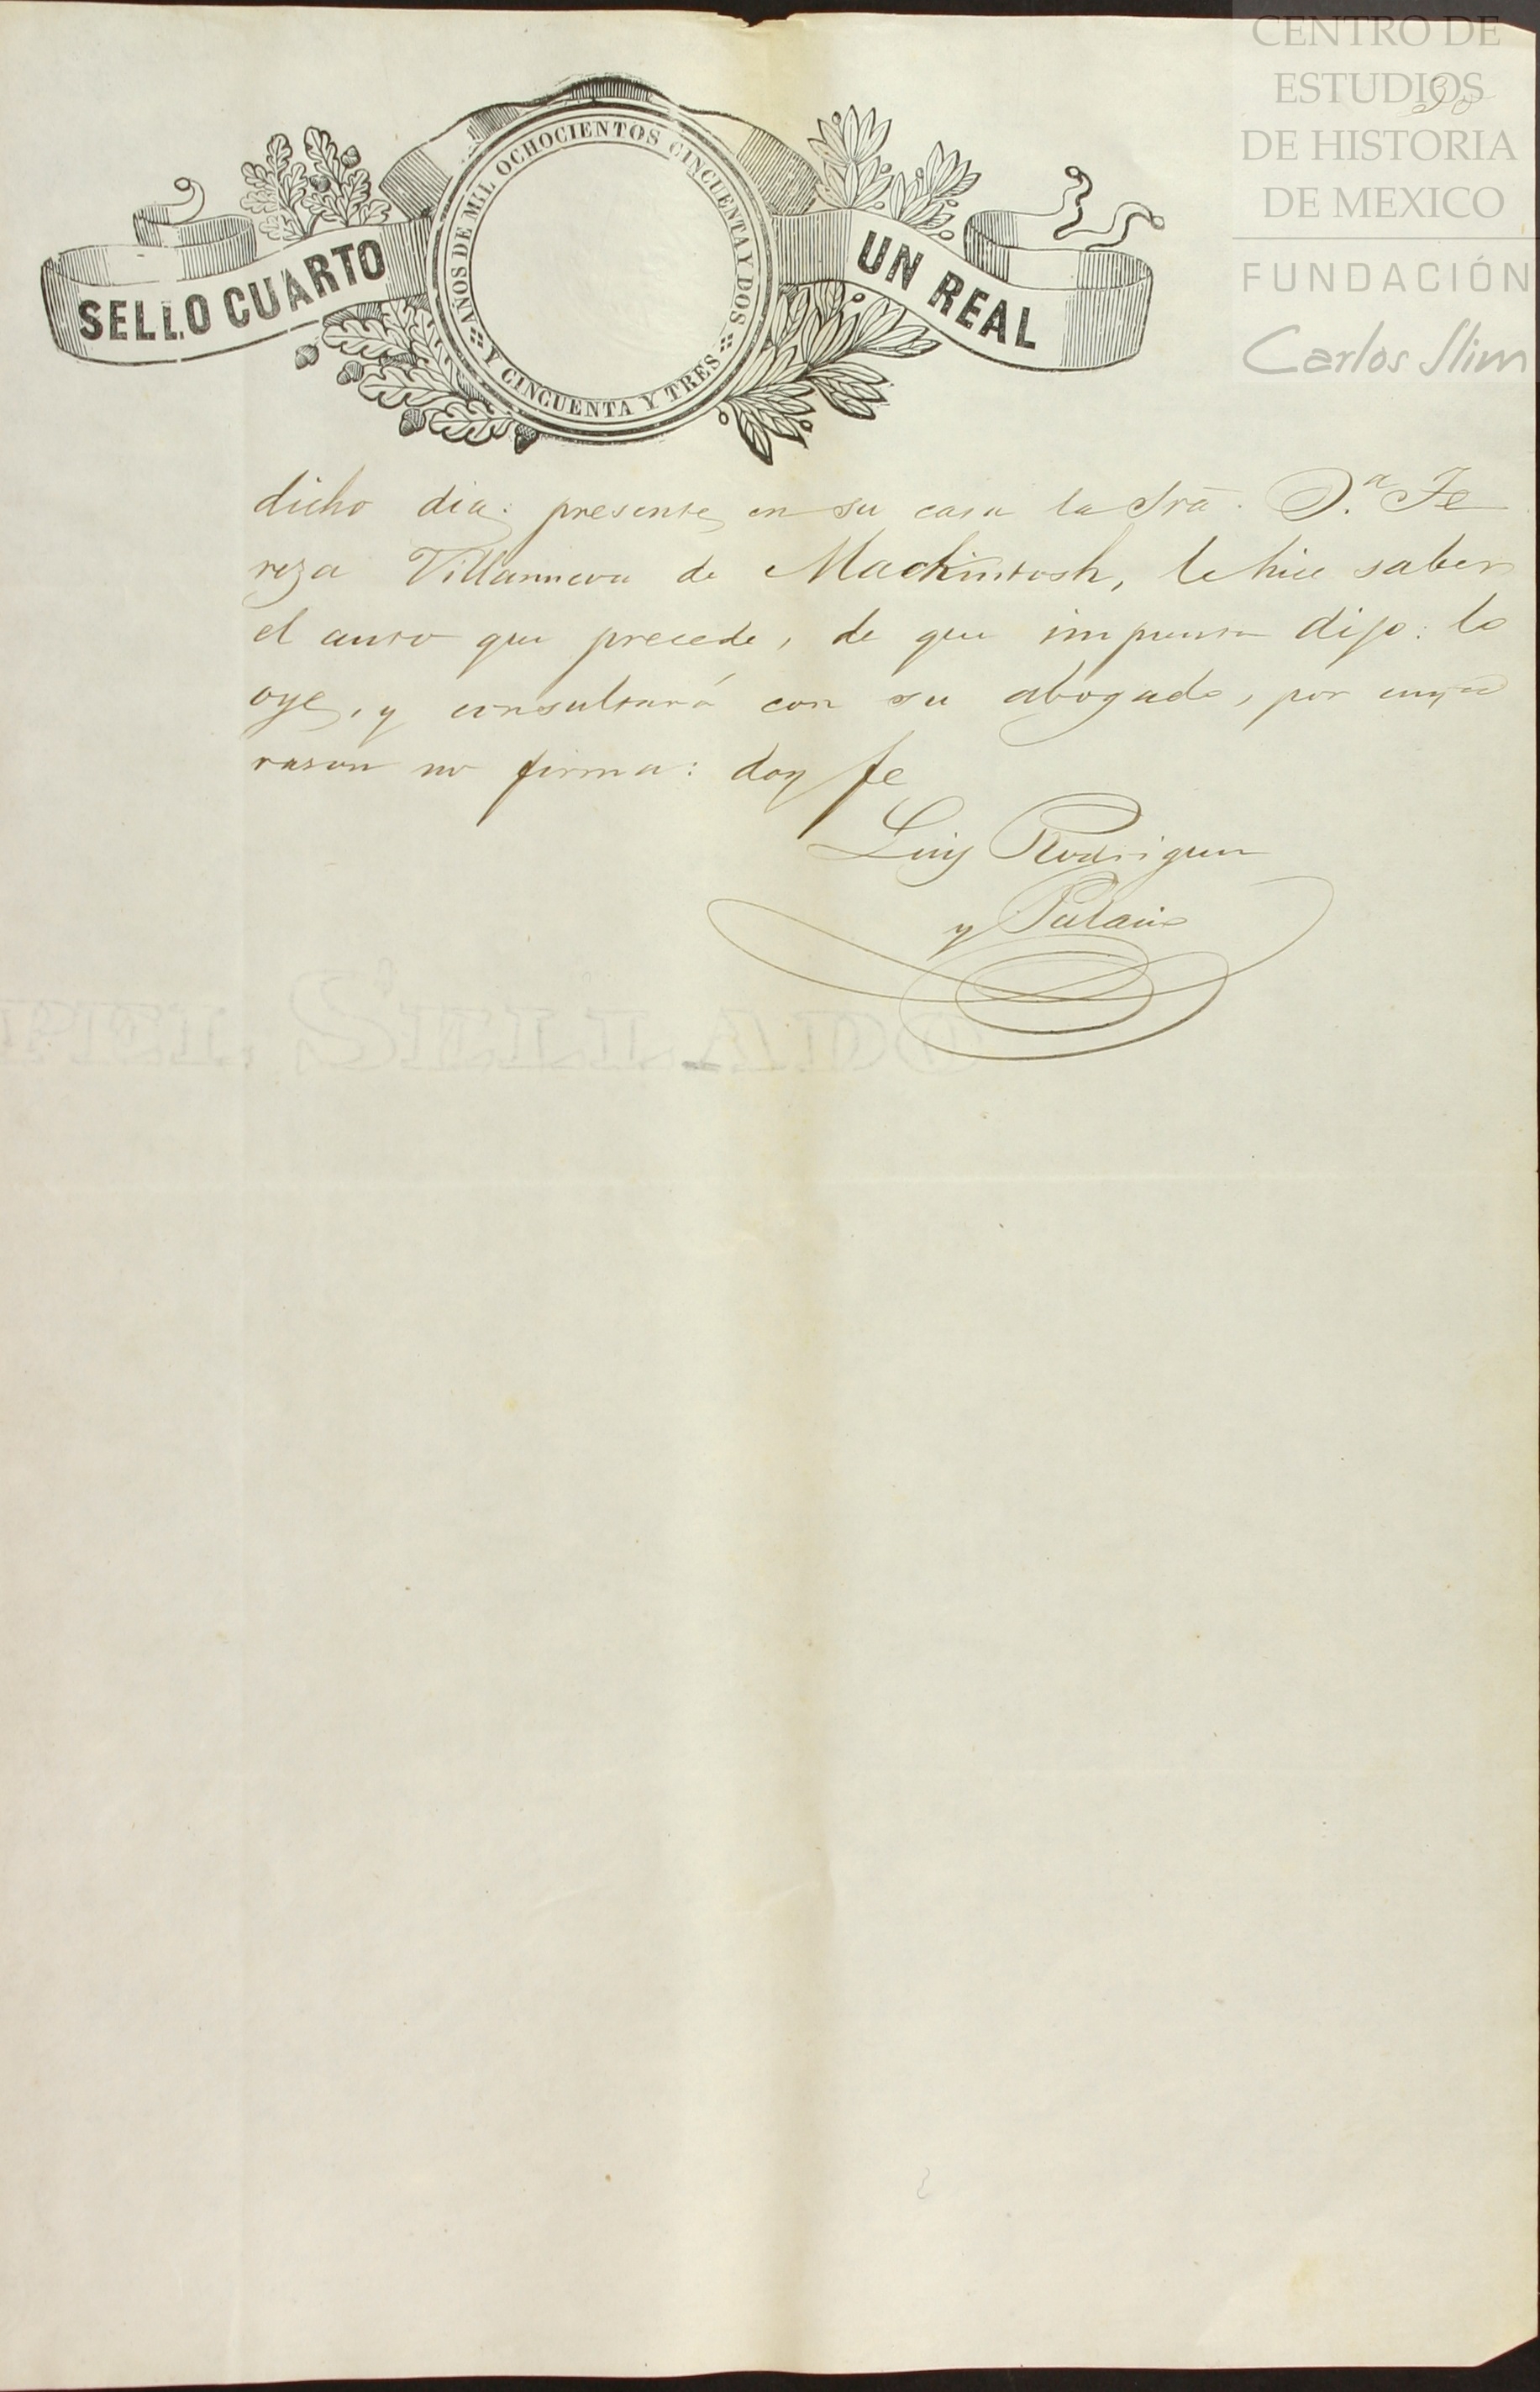 CENTRO DE
ESTUDIOS
DE HISTORIA
DE MEXICO
FUNDACIÓN
Carlos Slim
30
SELLO CUARTO
AÑOS DE MIL OCHOCIENTOS CINCUENTA Y DOS
Y CINCUENTA Y TRES
UN REAL
dicho dia: presente en su casa la Sra. D.a Te
reza Villanueva de Mackintosh, le hice saber
el auto que precede, de que impuesta dijo: lo
oye, y consultará con su abogado, por cuya
rason no firma: doy fe
Luis Rodriguez
y Palacio
PEL SELLADO